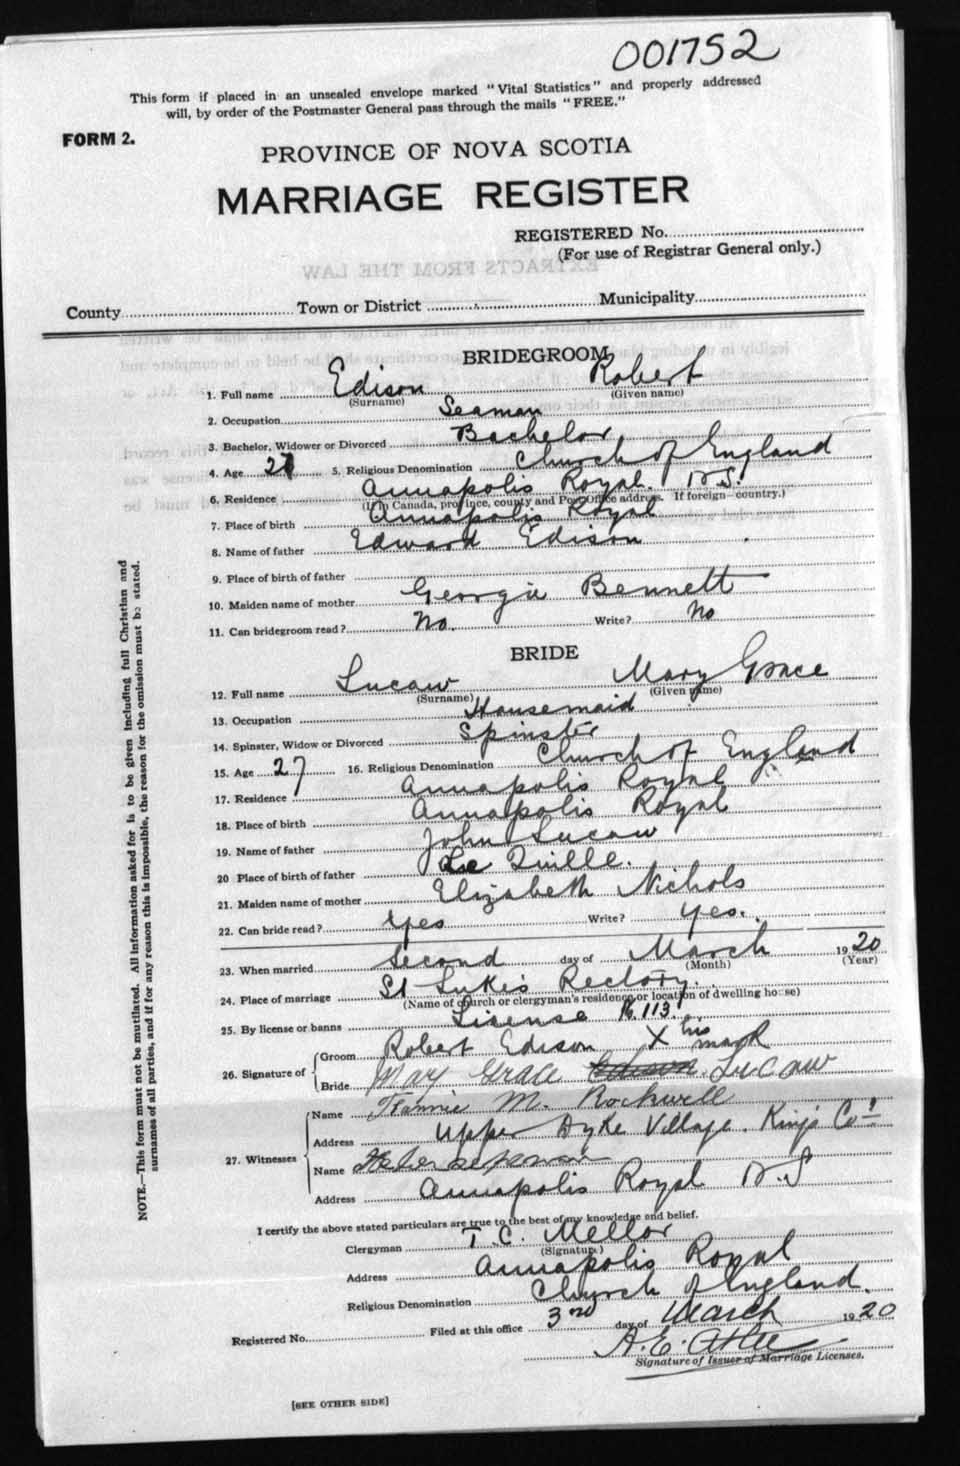 001752
This form if placed in an unsealed envelope marked "Vital Statistics" and properly addressed
will, by order of the Postmaster General pass through the mails "FREE."
FORM 2.
PROVINCE OF NOVA SCOTIA
MARRIAGE REGISTER
REGISTERED No.
(For use of Registrar General only.)
EXTRACTS FROM THE LAW
County Town or District Municipality
BRIDEGROOM
1. Full name Edison Robert
(Surname) (Given name)
2. Occupation Seaman
3. Bachelor, Widower or Divorced Bachelor
4. Age 5. Religious Denomination Church of England
6. Residence Annapolis Royal. N.S.
(If in Canada, province, county and Post Office address. If foreign—country.)
7. Place of birth Annapolis Royal
8. Name of father Edward Edison
9. Place of birth of father
10. Maiden name of mother Georgie Bennett
11. Can bridegroom read? No. Write? No
BRIDE
12. Full name Lucaw Mary Grace
(Surname) (Given name)
13. Occupation Housemaid
14. Spinster, Widow or Divorced Spinster
15. Age 27 16. Religious Denomination Church of England
17. Residence Annapolis Royal
18. Place of birth Annapolis Royal
19. Name of father John Lucaw
20 Place of birth of father Le Quille.
21. Maiden name of mother Elizabeth Nichols
22. Can bride read? Yes Write? Yes.
23. When married Second day of March 1920
(Month) (Year)
24. Place of marriage St Luke's Rectory.
(Name of church or clergyman's residence or location of dwelling house)
25. By license or banns Lisense 113.
26. Signature of Groom Robert Edison X his mark
Bride May Grace Edison Lucaw
27. Witnesses Name M. Rockwell
Address Upper Dyke Village. King's Co
Name
Address Annapolis Royal N.S
I certify the above stated particulars are true to the best of my knowledge and belief.
Clergyman T. C. Mellor
(Signature)
Address Annapolis Royal
Religious Denomination Church of England.
Registered No. Filed at this office 3rd day of March 1920
A. E. Atlee
Signature of Issuer of Marriage Licenses.
[SEE OTHER SIDE]
NOTE.—This form must not be mutilated. All information asked for is to be given including full Christian and
surnames of all parties, and if for any reason this is impossible, the reason for the omission must be stated.